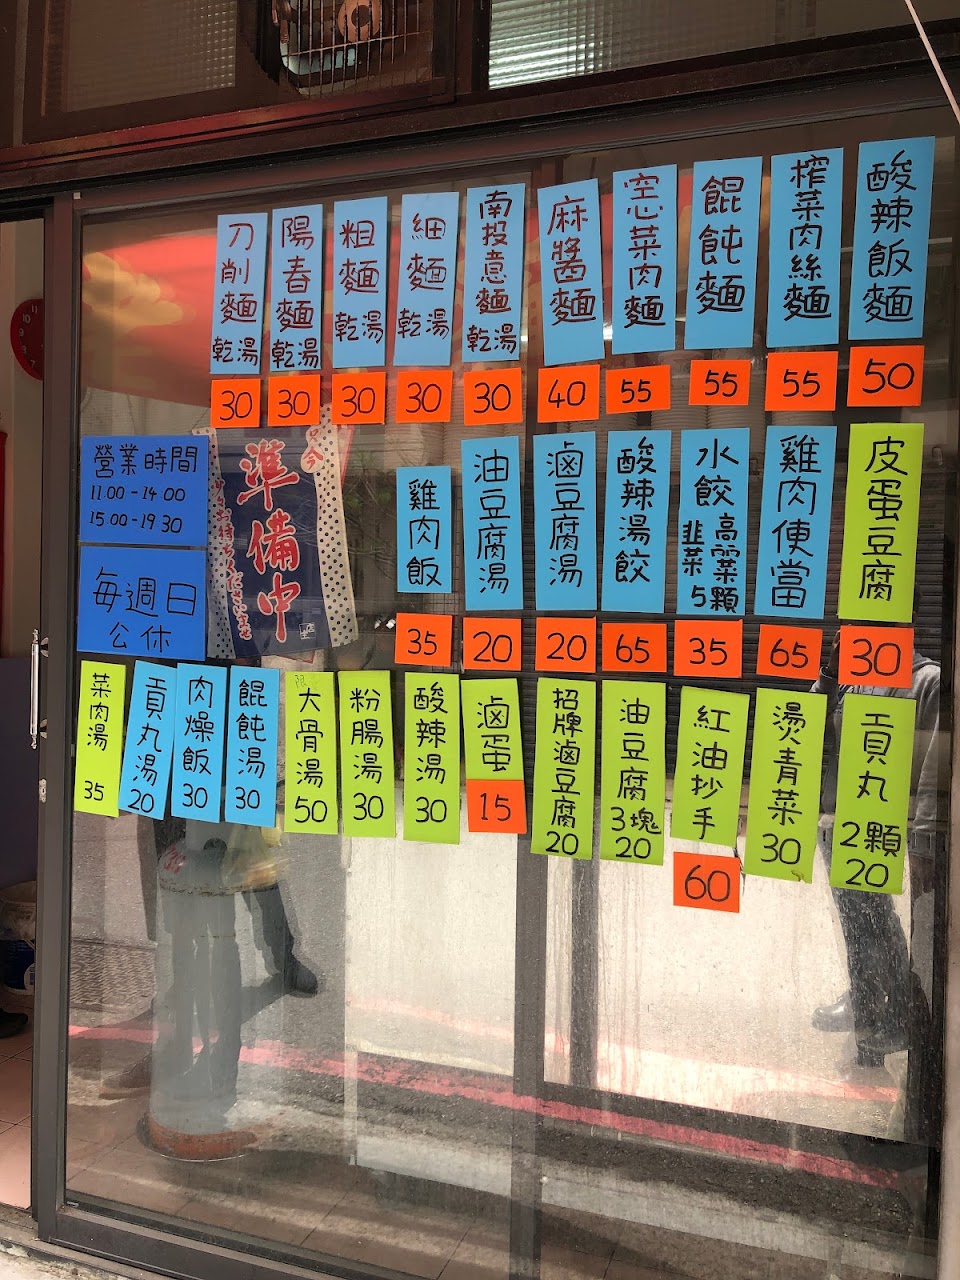 酸辣飯麵
50
榨菜肉絲麵
55
餛飩麵
55
空心菜肉麵
55
麻醬麵
40
南投意麵
乾湯
30
細麵
乾湯
30
粗麵
乾湯
30
陽春麵
乾湯
30
刀削麵
乾湯
30
皮蛋豆腐
30
雞肉便當
65
水餃
高麗菜
韭菜
5顆
35
酸辣湯餃
65
滷豆腐湯
20
油豆腐湯
20
雞肉飯
35
只今
準備中
營業時間
11.00-14 00
15.00-19 30
每週日
公休
貢丸
2顆
20
燙青菜
30
紅油抄手
60
油豆腐
3塊
20
招牌滷豆腐
20
滷蛋
15
酸辣湯
30
粉腸湯
30
大骨湯
50
餛飩湯
30
肉燥飯
30
貢丸湯
20
菜肉湯
35